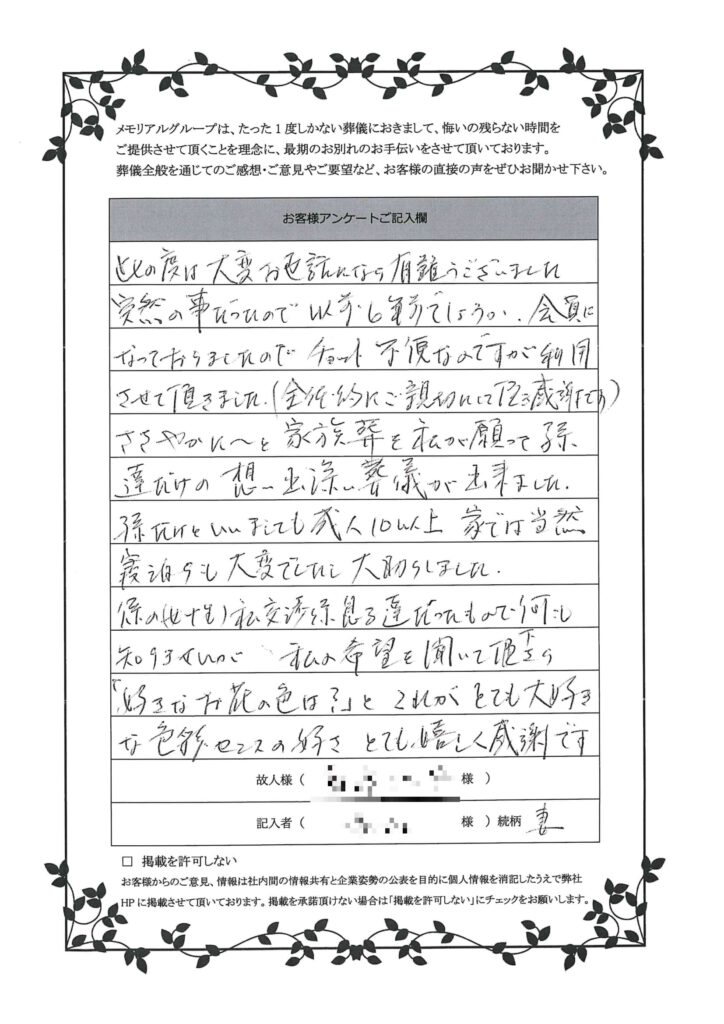 メモリアルグループは、たった1度しかない葬儀におきまして、悔いの残らない時間を
ご提供させて頂くことを理念に、最期のお別れのお手伝いをさせて頂いております。
葬儀全般を通じてのご感想・ご意見やご要望など、お客様の直接の声をぜひお聞かせ下さい。
お客様アンケートご記入欄
此の度は大変お世話になり有難うございました
突然の事だったので以前6年前でしょうか、会員に
なっておりましたのでチョット不便なのですが利用
させて頂きました。(全体的にご親切にして頂き感謝です)
ささやかに〜と家族葬を私が願って孫
達だけの想い出深い葬儀が出来ました。
孫だけといいましても成人10以上 家では当然
寝泊りも大変でしたし大助りしました。
係の(女性)
だったもので何も
知りませんが 私の希望を聞いて頂き
「好きなお花の色は?」と これがとても大好き
な色彩センスの好さ とても嬉しく感謝です
故人様( 様 )
記入者( 様 )続柄 妻
□ 掲載を許可しない
お客様からのご意見、情報は社内間の情報共有と企業姿勢の公表を目的に個人情報を消記したうえで弊社
HPに掲載させて頂いております。掲載を承諾頂けない場合は「掲載を許可しない」にチェックをお願いします。